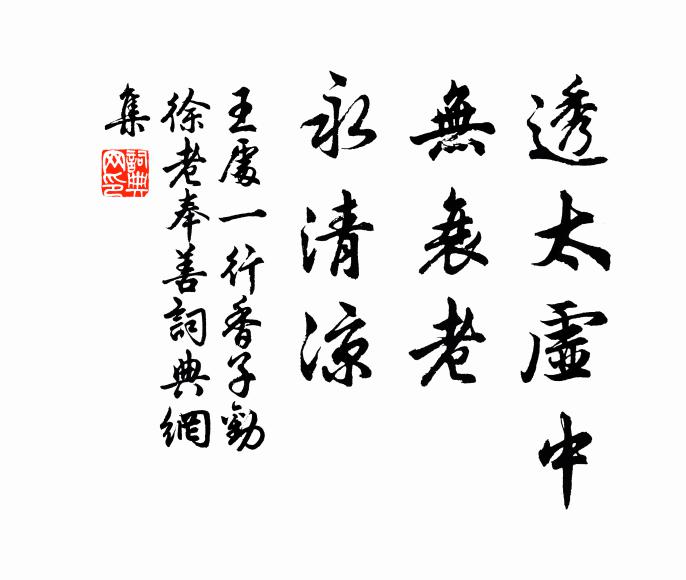 透太虛中
無衰老
永清涼
王處一行香子勸
徐老奉善詞典網
集
詞典网印